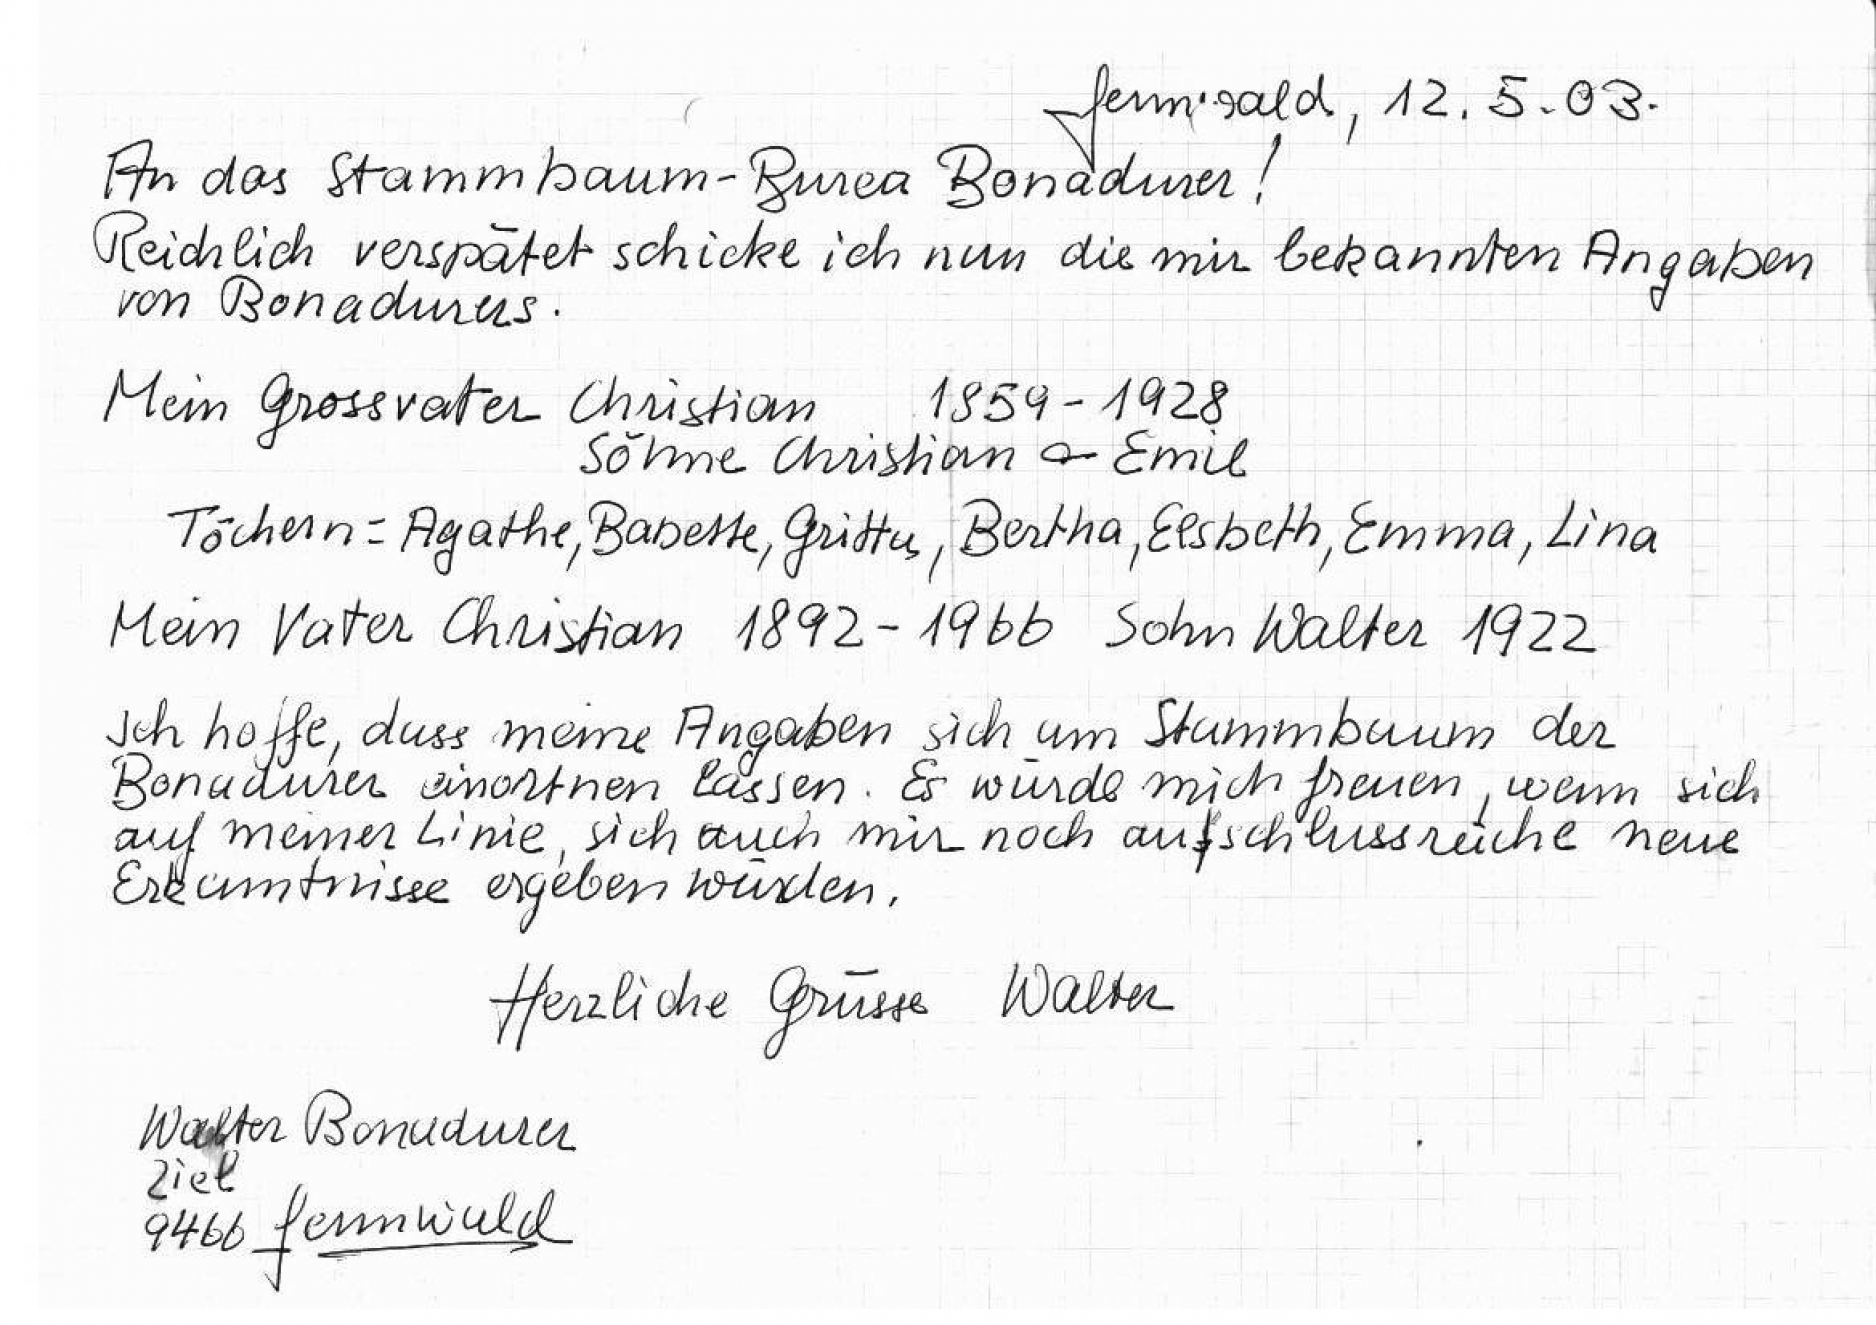 Sennwald, 12. 5. 03.
An das Stammbaum-Burea Bonadurer!
Reichlich verspätet schicke ich nun die mir bekannten Angaben
von Bonadurers.
Mein Grossvater Christian 1859-1928
Söhne Christian & Emil
Töchern = Agathe, Babette, Gritta, Bertha, Elsbeth, Emma, Lina
Mein Vater Christian 1892-1966 Sohn Walter 1922
Ich hoffe, dass meine Angaben sich am Stammbaum der
Bonadurer einortnen lassen. Es würde mich freuen, wenn sich
auf meiner Linie, sich auch mir noch aufschlussreiche neue
Erkanntnisse ergeben würden.
Herzliche Grüsse Walter
Walter Bonadurer
Ziel
9466 Sennwald